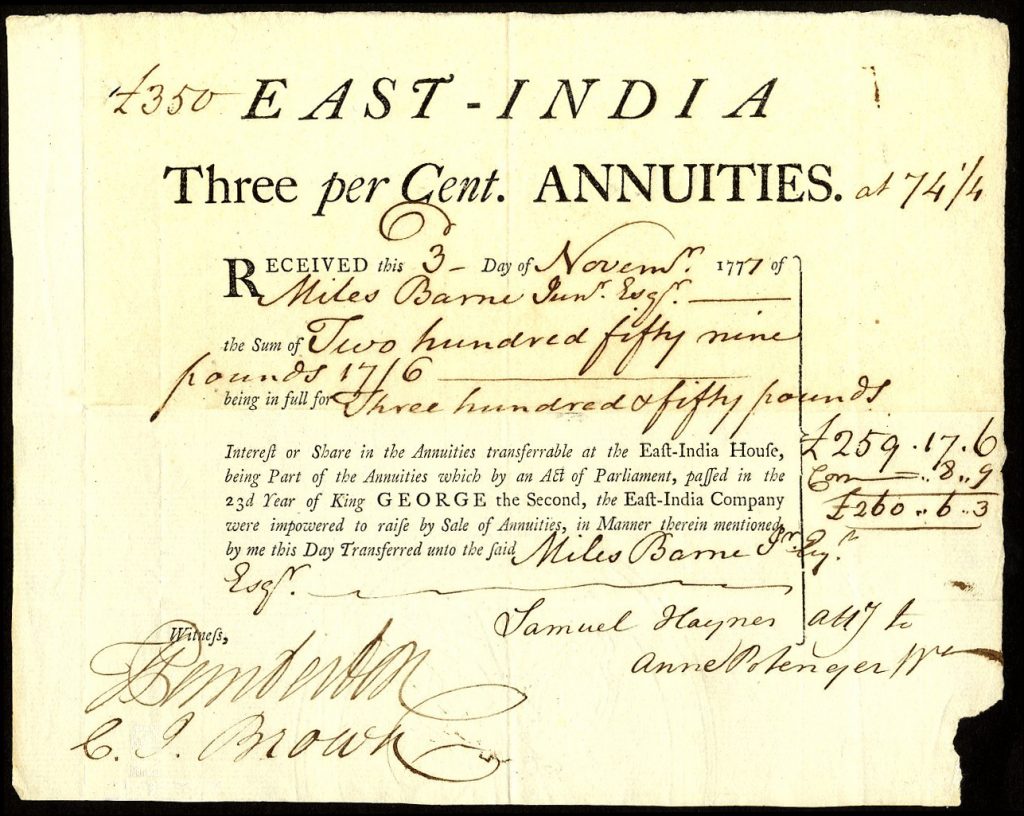 £350 EAST-INDIA
Three per Cent. ANNUITIES. at 74 1/4
RECEIVED this 3d Day of Novemr. 1777 of
Miles Barne Junr. Esqr.
the Sum of Two hundred fifty nine
pounds 17/6
being in full for Three hundred & fifty pounds
£259.17.6
Intereſt or Share in the Annuities transferrable at the Eaſt-India House,
Com 8..9
being Part of the Annuities which by an Act of Parliament, paſſed in the
£260..6..3
23d Year of King GEORGE the Second, the Eaſt-India Company
were impowered to raiſe by Sale of Annuities, in Manner therein mentioned,
by me this Day Transferred unto the ſaid Miles Barne Jnr.
Esqr.
Samuel Haynes atty to
Witneſs,
Anne Potenger Wo
Pemberton
C. J. Brown